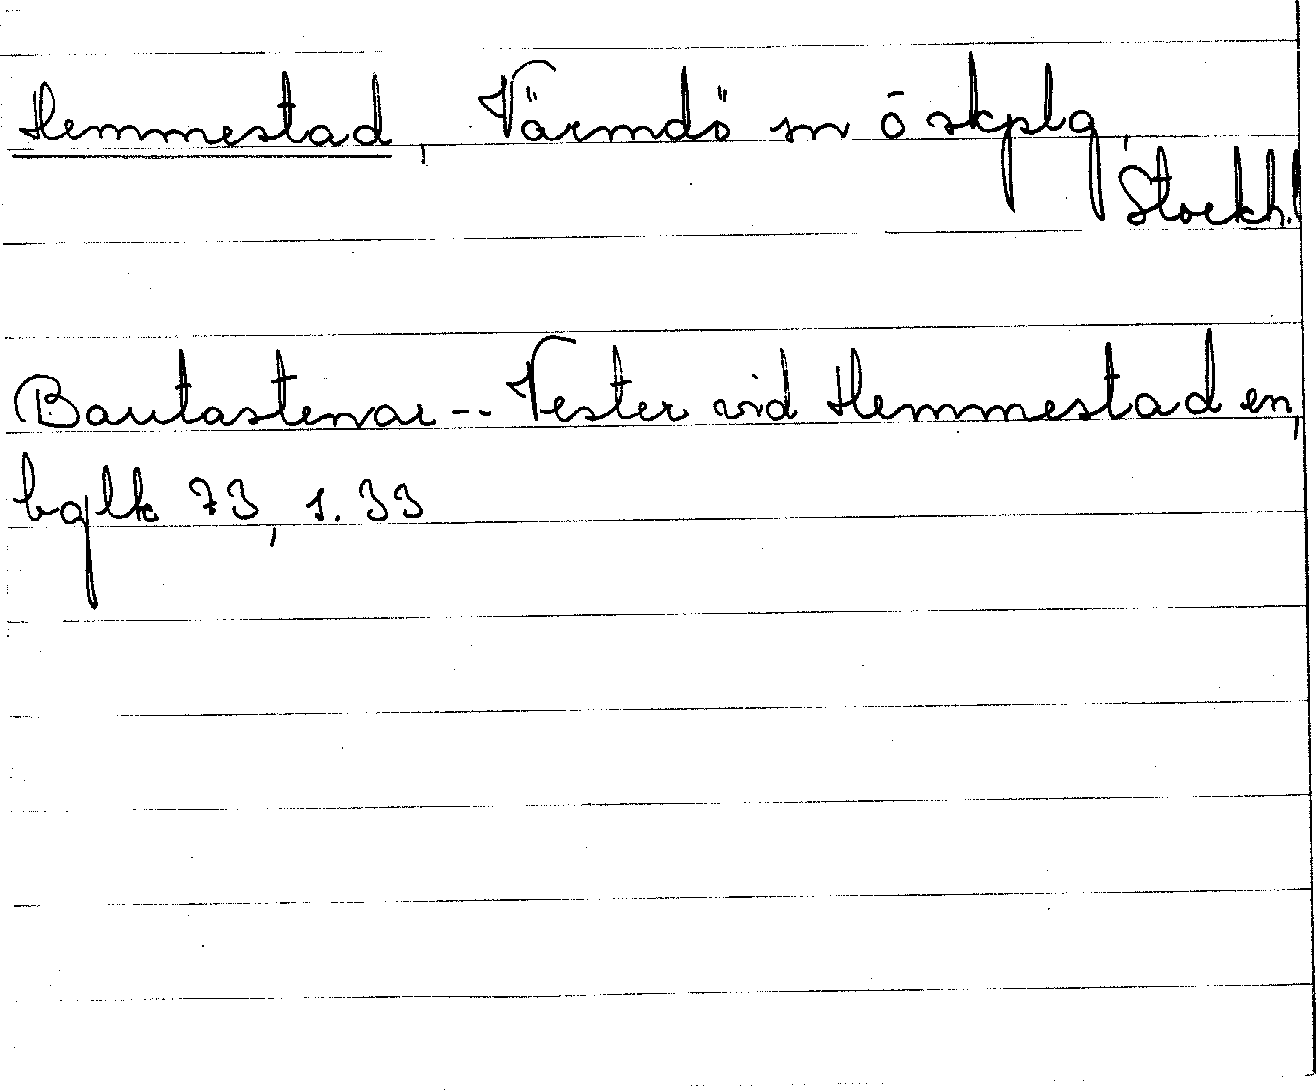 Hemmestad, Värmdö sn ö skplg,
Stockh. l
Bautastenar -- Vester vid Hemmestad en,
bglk 73, s. 33